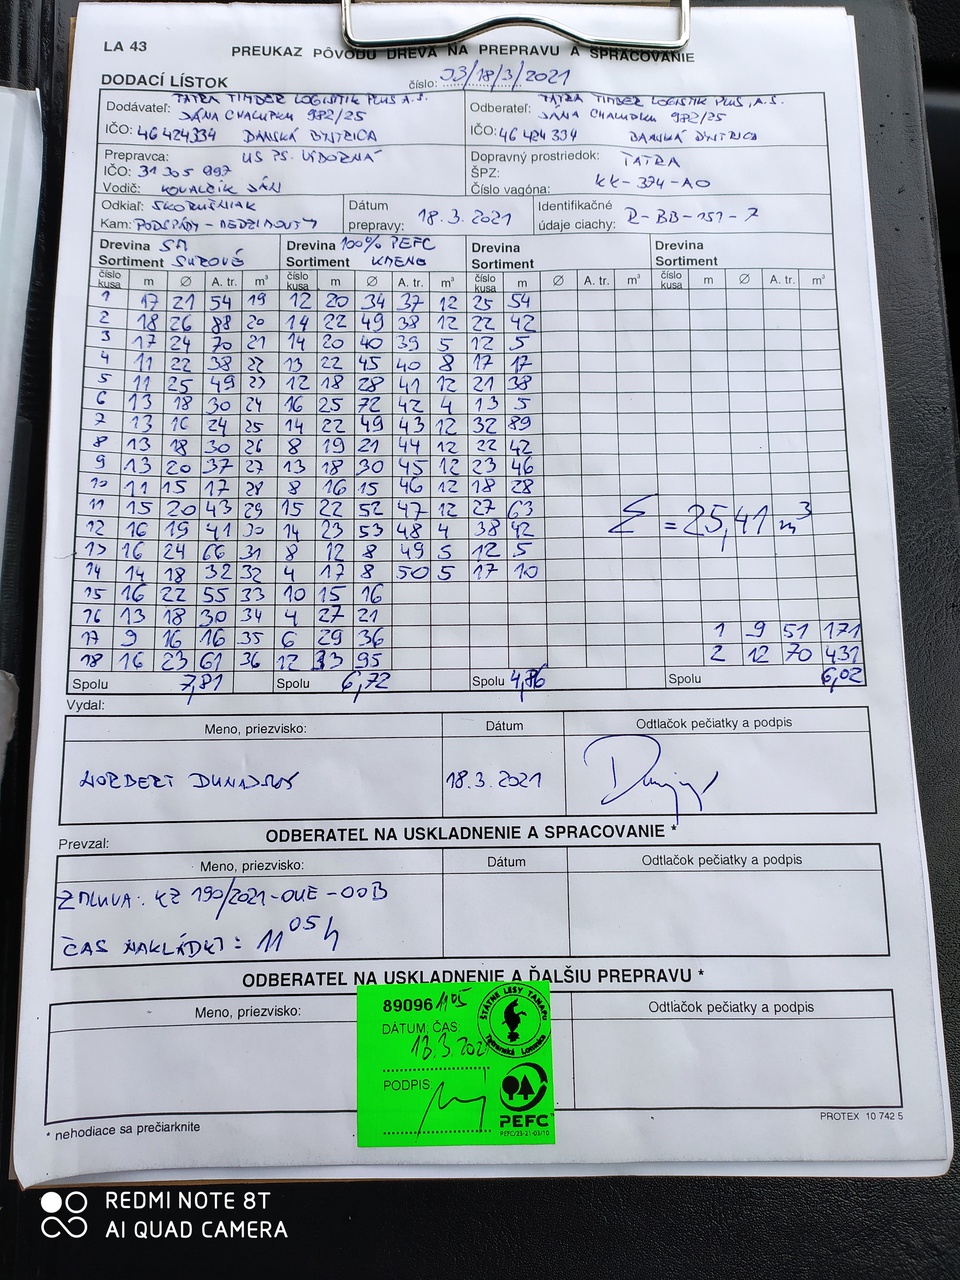 LA 43
PREUKAZ PÔVODU DREVA NA PREPRAVU A SPRACOVANIE
DODACÍ LÍSTOK číslo: 03/18/3/2021
Dodávateľ: TATRA TIMBER LOGISTIK PLUS A.S. Odberateľ: TATRA TIMBER LOGISTIK PLUS, A.S.
JÁNA CHALUPKU 982/25 JÁNA CHALUPKU 982/25
IČO: 46 424 334 BANSKÁ BYSTRICA IČO: 46 424 334 BANSKÁ BYSTRICA
Prepravca: US PS. Dopravný prostriedok: TATRA
IČO: 31 305 997 ŠPZ: KK-374-AO
Vodič: KOVALČÍK JÁN Číslo vagóna:
Odkiaľ: SKORUŠNIAK Dátum Identifikačné
Kam: PODSPÁDY - prepravy: 18.3.2021 údaje ciachy: R-BB-151-7
Drevina SM Drevina 100% PEFC Drevina Drevina
Sortiment SUROVÉ Sortiment KMENE Sortiment Sortiment
číslo kusa m Ø A. tr. m³ číslo kusa m Ø A. tr. m³ číslo kusa m Ø A. tr. m³ číslo kusa m Ø A. tr. m³
1 17 21 54 19 12 20 34 37 12 25 54
2 18 26 88 20 14 22 49 38 12 22 42
3 17 24 70 21 14 20 40 39 5 12 5
4 11 22 38 22 13 22 45 40 8 17 17
5 11 25 49 23 12 18 28 41 12 21 38
6 13 18 30 24 16 25 72 42 4 13 5
7 13 16 24 25 14 22 49 43 12 32 89
8 13 18 30 26 8 19 21 44 12 22 42
9 13 20 37 27 13 18 30 45 12 23 46
10 11 15 17 28 8 16 15 46 12 18 28
11 15 20 43 29 15 22 52 47 12 27 63
12 16 19 41 30 14 23 53 48 4 38 42
Σ = 25,41 m³
13 16 24 66 31 8 12 8 49 5 12 5
14 14 18 32 32 4 17 8 50 5 17 10
15 16 22 55 33 10 15 16
16 13 18 30 34 4 27 21
17 9 16 16 35 6 29 36 1 9 51 171
18 16 23 61 36 12 33 95 2 12 70 431
Spolu 7,81 Spolu 6,72 Spolu 4,86 Spolu 6,02
Vydal:
Meno, priezvisko: Dátum Odtlačok pečiatky a podpis
NORBERT 18.3.2021
ODBERATEĽ NA USKLADNENIE A SPRACOVANIE *
Prevzal:
Meno, priezvisko: Dátum Odtlačok pečiatky a podpis
ZMLUVA: KZ 190/2021-OUE-OOB
ČAS NAKLÁDKY: 11 05 h
ODBERATEĽ NA USKLADNENIE A ĎALŠIU PREPRAVU *
Meno, priezvisko: Odtlačok pečiatky a podpis
89096 1105
ŠTÁTNE LESY TANAPu
Tatranská Lomnica
DÁTUM, ČAS:
18.3.2021
PODPIS
PEFC
PEFC/23-21-03/10
* nehodiace sa prečiarknite
PROTEX 10 742 5
REDMI NOTE 8T
AI QUAD CAMERA